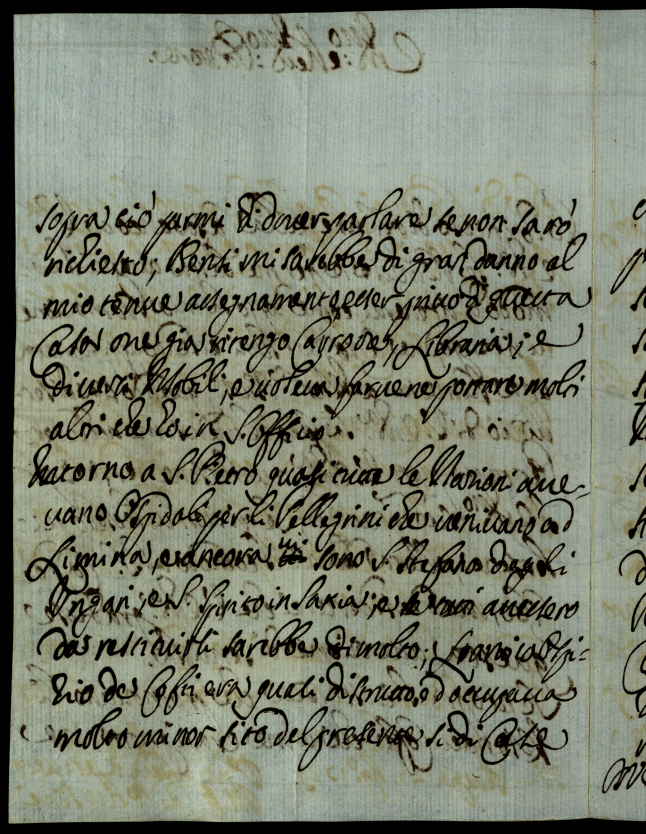 sopra ciò parmi di dover parlare se non sarò
richiesto; Bensì mi sarebbe di gran danno al
mio tenue assegnamento esser privo di questa
Casa one già ritengo Libraria; e
diversi Mobili, e voleva farvene portare molti
altri che ho in S. Officio.
Intorno a S. Pietro quasi tutte le Nazioni ave-
vano Ospidale per li Pellegrini che venivano ad
Limina, e ancora vi sono S. Stefano degli
Ungari, e S. Spirito in Saxia; e se tutti avessero
da restituirsi sarebbe di molto; Ospi-
tio de Cofti era quasi distrutto, ed occupava
molto minor sito del presente sì di Case